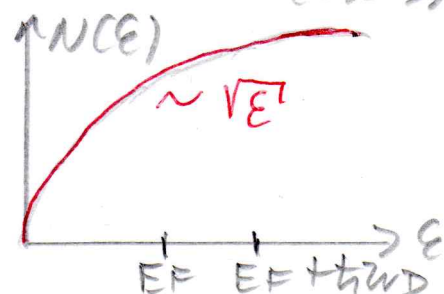 N(ε)
~ √ε
ε
EF
EF + ħωD